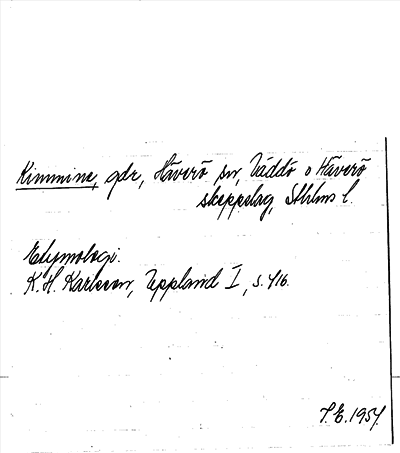 Kimmine, gdr, Häverö sn, Väddö o Häverö
skeppslag, Sthlms l.
Etymologi.
K. H. Karlsson, Uppland I, s. 416.
T. E. 1954.